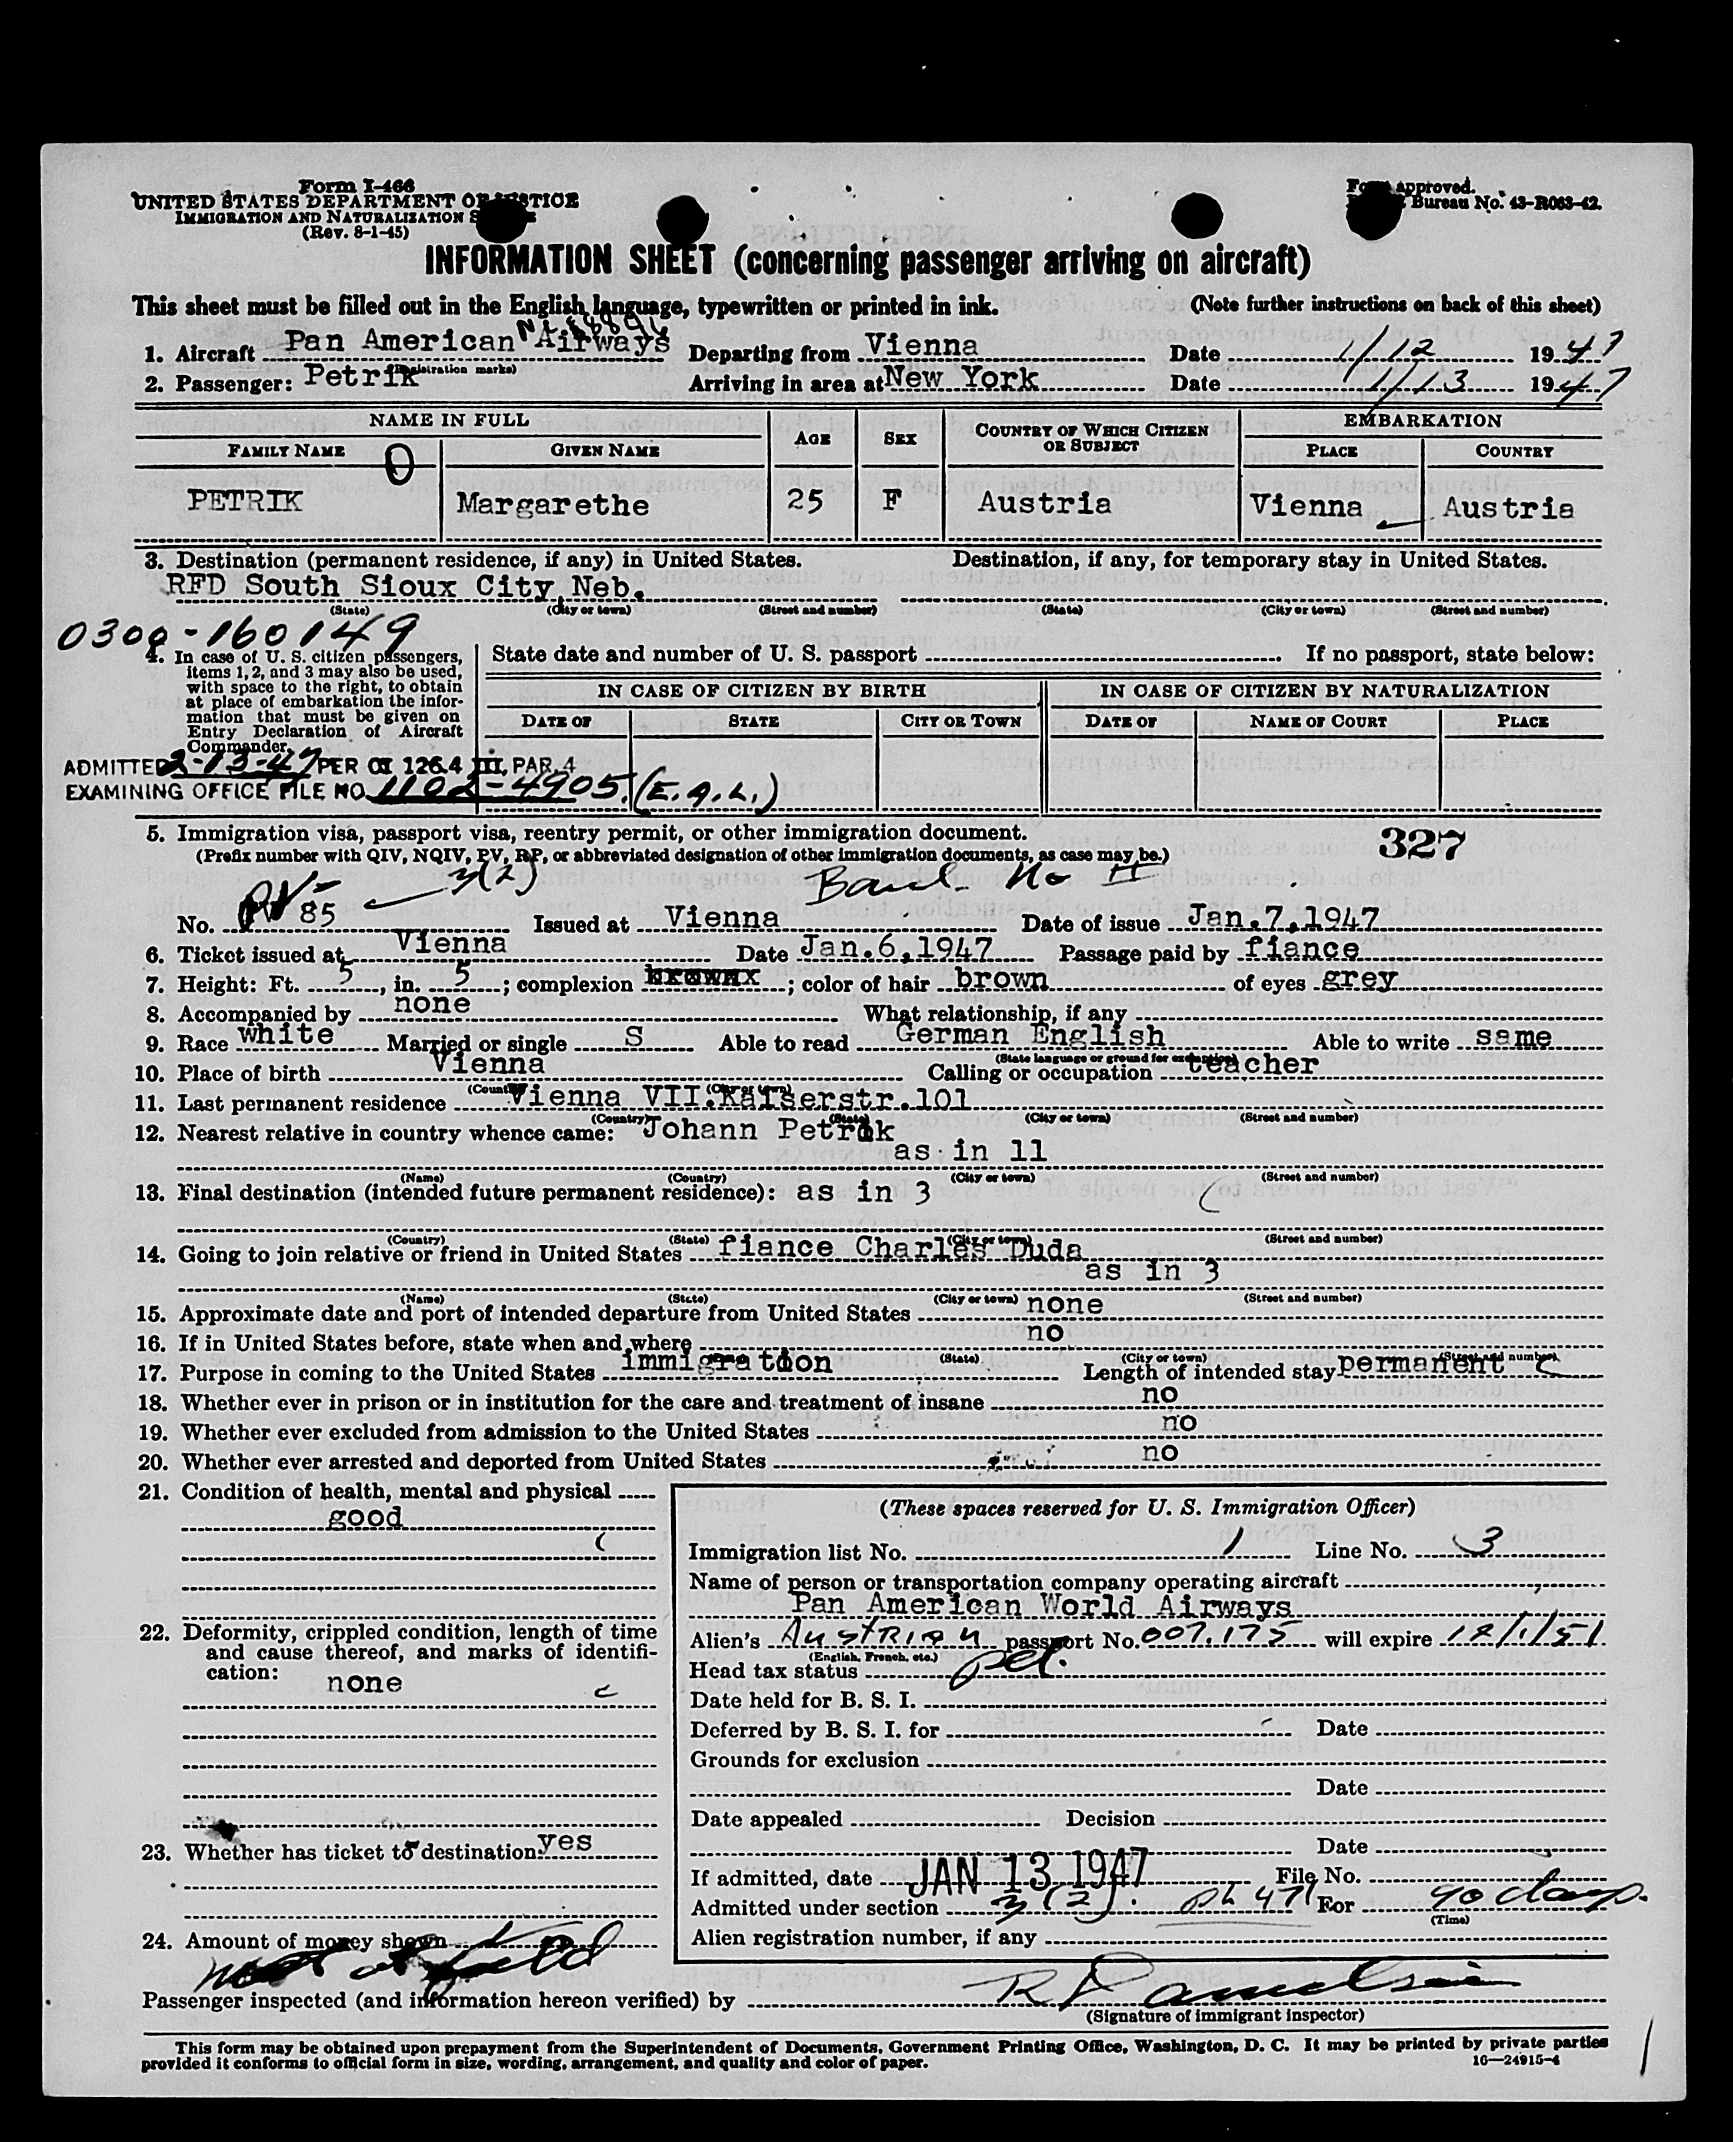 Form I-466
UNITED STATES DEPARTMENT OF JUSTICE
IMMIGRATION AND NATURALIZATION
(Rev. 8-1-45)
Form approved.
Bureau No. 43-R063-42.
INFORMATION SHEET (concerning passenger arriving on aircraft)
This sheet must be filled out in the English language, typewritten or printed in ink. (Note further instructions on back of this sheet)
1. Aircraft Pan American Airways Departing from Vienna Date 1/12 1947
2. Passenger: Petrik Arriving in area at New York Date 1/13 1947
NAME IN FULL AGE SEX COUNTRY OF WHICH CITIZEN OR SUBJECT EMBARKATION
FAMILY NAME GIVEN NAME PLACE COUNTRY
PETRIK Margarethe 25 F Austria Vienna Austria
3. Destination (permanent residence, if any) in United States. Destination, if any, for temporary stay in United States.
RFD South Sioux City, Neb.
(State) (City or town) (Street and number) (State) (City or town) (Street and number)
0300-160149
4. In case of U. S. citizen passengers,
items 1, 2, and 3 may also be used,
with space to the right, to obtain
at place of embarkation the infor-
mation that must be given on
Entry Declaration of Aircraft
Commander.
State date and number of U. S. passport If no passport, state below:
IN CASE OF CITIZEN BY BIRTH IN CASE OF CITIZEN BY NATURALIZATION
DATE OF STATE CITY OR TOWN DATE OF NAME OF COURT PLACE
ADMITTED 2-13-47 PER OI 126.4 III, PAR. 4
EXAMINING OFFICE FILE NO. 1102-4905. (E.A.L.)
5. Immigration visa, passport visa, reentry permit, or other immigration document. 327
(Prefix number with QIV, NQIV, PV, RP, or abbreviated designation of other immigration documents, as case may be.)
PV- 3(2) No II
No. 85 Issued at Vienna Date of issue Jan.7,1947
6. Ticket issued at Vienna Date Jan.6,1947 Passage paid by fiance
7. Height: Ft. 5, in. 5; complexion; color of hair brown of eyes grey
8. Accompanied by none What relationship, if any
9. Race white Married or single S Able to read German English Able to write same
(State language or ground for exemption)
10. Place of birth Vienna Calling or occupation teacher
(Country) (City or town)
11. Last permanent residence Vienna VII.Kaiserstr.101
(Country) (State) (City or town) (Street and number)
12. Nearest relative in country whence came: Johann Petrik
as in 11
(Name) (Country) (City or town) (Street and number)
13. Final destination (intended future permanent residence): as in 3
(Country) (State) (City or town) (Street and number)
14. Going to join relative or friend in United States fiance Charles Duda
as in 3
(Name) (State) (City or town) (Street and number)
15. Approximate date and port of intended departure from United States none
16. If in United States before, state when and where no
(State) (City or town) (Street and number)
17. Purpose in coming to the United States immigration Length of intended stay permanent
18. Whether ever in prison or in institution for the care and treatment of insane no
19. Whether ever excluded from admission to the United States no
20. Whether ever arrested and deported from United States no
21. Condition of health, mental and physical
good
22. Deformity, crippled condition, length of time
and cause thereof, and marks of identifi-
cation:
none
23. Whether has ticket to destination: yes
24. Amount of money shown
(These spaces reserved for U. S. Immigration Officer)
Immigration list No. 1 Line No. 3
Name of person or transportation company operating aircraft
Pan American World Airways
Alien's Austrian passport No. 007.175 will expire 18/1/51
(English, French, etc.)
Head tax status
Date held for B. S. I.
Deferred by B. S. I. for Date
Grounds for exclusion
Date
Date appealed Decision
Date
If admitted, date JAN 13 1947 File No.
Admitted under section 3(2). PL 471 For 90 days.
(Time)
Alien registration number, if any
Passenger inspected (and information hereon verified) by
(Signature of immigrant inspector)
This form may be obtained upon prepayment from the Superintendent of Documents, Government Printing Office, Washington, D. C. It may be printed by private parties
provided it conforms to official form in size, wording, arrangement, and quality and color of paper. 16—24915-4